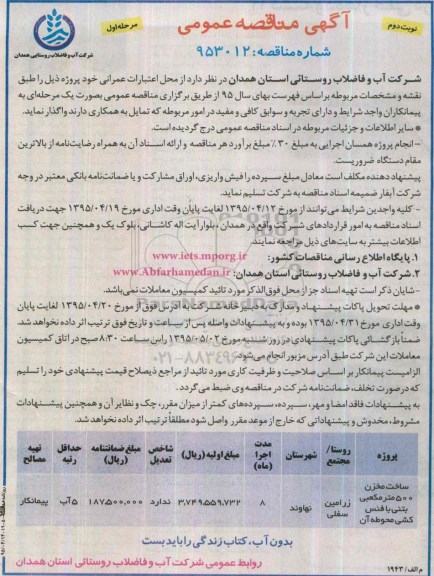 نوبت دوم
آگهی مناقصه عمومی
مرحله اول
شماره مناقصه: ۹۵۳۰۱۲
شرکت آب و فاضلاب روستایی همدان
شرکت آب و فاضلاب روستایی استان همدان در نظر دارد از محل اعتبارات عمرانی خود پروژه ذیل را طبق
نقشه و مشخصات مربوطه براساس فهرست بهای سال ۹۵ از طریق برگزاری مناقصه عمومی بصورت یک مرحله‌ای به
پیمانکاران واجد شرایط و دارای تجربه و سوابق کافی و مفید در امور مربوطه که تمایل به همکاری دارند واگذار نماید.
* سایر اطلاعات و جزئیات مربوطه در اسناد مناقصه عمومی درج گردیده است.
- انجام پروژه همسان اجرایی به مبلغ ۳۰٪ مبلغ برآورد هر مناقصه و ارائه اسناد آن به همراه رضایت‌نامه از بالاترین
مقام دستگاه ضروریست.
پیشنهاد دهنده مکلف است معادل مبلغ سپرده را فیش واریزی، اوراق مشارکت و یا ضمانت‌نامه بانکی معتبر در وجه
شرکت آبفار ضمیمه اسناد مناقصه به شرکت تسلیم نماید.
- کلیه واجدین شرایط می‌توانند از مورخ ۱۳۹۵/۰۴/۱۲ لغایت پایان وقت اداری مورخ ۱۳۹۵/۰۴/۱۹ جهت دریافت
اسناد مناقصه به امور قراردادهای شرکت واقع در همدان، بلوار آیت اله کاشانی، بلوک یک و همچنین جهت کسب
اطلاعات بیشتر به سایت‌های ذیل مراجعه نمایند.
۱. پایگاه اطلاع رسانی مناقصات کشور: www.iets.mporg.ir
۲. شرکت آب و فاضلاب روستائی استان همدان: www.Abfarhamedan.ir
- شایان ذکر است تهیه اسناد جز از محل فوق‌الذکر مورد تائید کمیسیون معاملات نمی‌باشد.
* مهلت تحویل پاکات پیشنهاد و مدارک به دبیرخانه شرکت به آدرس فوق از مورخ ۱۳۹۵/۰۴/۲۰ لغایت پایان
وقت اداری مورخ ۱۳۹۵/۰۴/۳۱ بوده و به پیشنهادات واصله پس از ساعت و تاریخ فوق ترتیب اثر داده نخواهد شد.
ضمناً بازگشائی پاکات پیشنهادی در روز شنبه مورخ ۱۳۹۵/۰۵/۰۲ راس ساعت ۸:۳۰ صبح در اتاق کمیسیون
معاملات این شرکت طبق آدرس مزبور انجام می‌شود.
الزامیست پیمانکار بر اساس صلاحیت و ظرفیت کاری مورد تائید از مراجع ذیصلاح قیمت پیشنهادی خود را تسلیم
که در صورت تخلف، ضمانت‌نامه شرکت در مناقصه وی ضبط می‌گردد.
به پیشنهادات فاقد امضا و مهر، سپرده، سپرده‌های کمتر از میزان مقرر، چک و نظایر آن و همچنین پیشنهادات
مشروط، مخدوش و پیشنهاداتی که خارج از موعد مقرر واصل شود مطلقاً ترتیب اثر داده نخواهد شد.
پروژه | روستا/مجتمع | شهرستان | مدت اجرا (ماه) | مبلغ اولیه (ریال) | شاخص تعدیل | مبلغ ضمانتنامه (ریال) | حداقل رتبه | تهیه مصالح
ساخت مخزن ۵۰۰ متر مکعبی بتنی با فنس کشی محوطه آن | زرامین سفلی | نهاوند | ۸ | ۳,۷۴۹,۵۵۹,۷۳۲ | ندارد | ۱۸۷۵۰۰,۰۰۰ | ۵ آب | پیمانکار
بدون آب، کتاب زندگی را باید بست
روابط عمومی شرکت آب و فاضلاب روستائی استان همدان
م الف / ۱۹۴۳